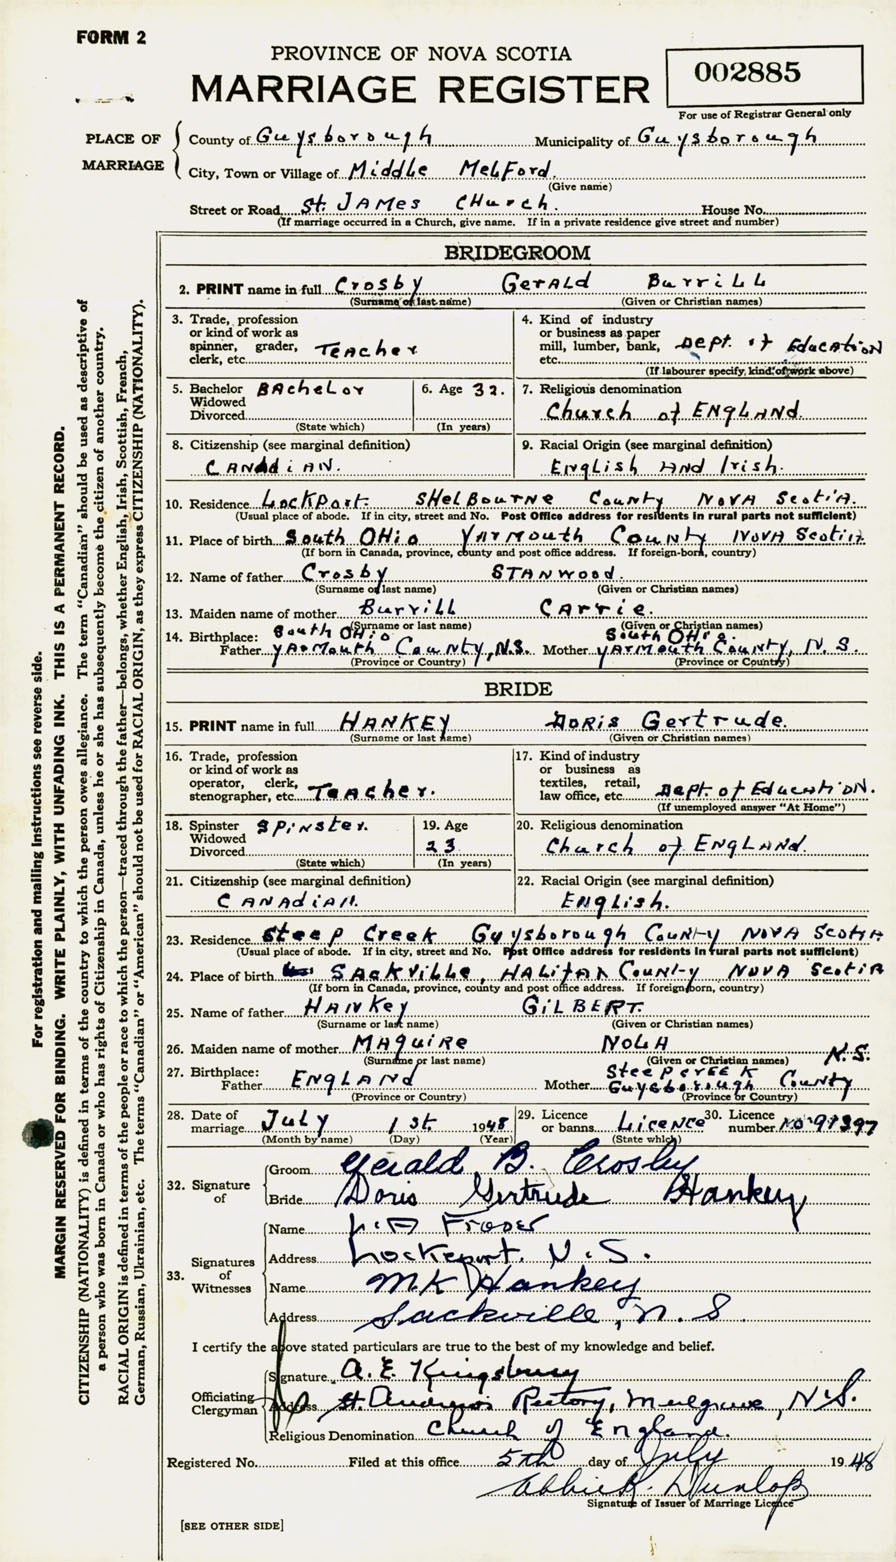 FORM 2
PROVINCE OF NOVA SCOTIA
MARRIAGE REGISTER
002885
For use of Registrar General only
PLACE OF MARRIAGE
County of Guysborough Municipality of Guysborough
City, Town or Village of Middle Melford.
(Give name)
Street or Road St. James Church. House No.
(If marriage occurred in a Church, give name. If in a private residence give street and number)
BRIDEGROOM
2. PRINT name in full Crosby Gerald Burrill
(Surname or last name) (Given or Christian names)
3. Trade, profession or kind of work as spinner, grader, clerk, etc. Teacher
4. Kind of industry or business as paper mill, lumber, bank, etc. Dept. of Education
(If labourer specify, kind of work above)
5. Bachelor Widowed Divorced Bachelor
(State which)
6. Age 32.
(In years)
7. Religious denomination
Church of England.
8. Citizenship (see marginal definition)
Canadian.
9. Racial Origin (see marginal definition)
English and Irish.
10. Residence Lockport. Shelbourne County Nova Scotia.
(Usual place of abode. If in city, street and No. Post Office address for residents in rural parts not sufficient)
11. Place of birth South Ohio Yarmouth County Nova Scotia
(If born in Canada, province, county and post office address. If foreign-born, country)
12. Name of father Crosby Stanwood.
(Surname or last name) (Given or Christian names)
13. Maiden name of mother Burrill Carrie.
(Surname or last name) (Given or Christian names)
14. Birthplace: South Ohio South Ohio.
Father Yarmouth County, N.S. Mother Yarmouth County, N.S.
(Province or Country) (Province or Country)
BRIDE
15. PRINT name in full Hankey Doris Gertrude.
(Surname or last name) (Given or Christian names)
16. Trade, profession or kind of work as operator, clerk, stenographer, etc. Teacher.
17. Kind of industry or business as textiles, retail, law office, etc. Dept. of Education.
(If unemployed answer "At Home")
18. Spinster Widowed Divorced Spinster.
(State which)
19. Age
23
(In years)
20. Religious denomination
Church of England.
21. Citizenship (see marginal definition)
Canadian.
22. Racial Origin (see marginal definition)
English.
23. Residence Steep Creek Guysborough County Nova Scotia
(Usual place of abode. If in city, street and No. Post Office address for residents in rural parts not sufficient)
24. Place of birth Sackville, Halifax County Nova Scotia
(If born in Canada, province, county and post office address. If foreign born, country)
25. Name of father Hankey Gilbert.
(Surname or last name) (Given or Christian names)
26. Maiden name of mother Maguire Nola
(Surname or last name) (Given or Christian names) N.S.
27. Birthplace: Steep Creek
Father England Mother Guysborough County
(Province or Country) (Province or Country)
28. Date of marriage July 1st. 1948
(Month by name) (Day) (Year)
29. Licence or banns. Licence
(State which)
30. Licence number
32. Signature of
Groom Gerald B. Crosby
Bride Doris Gertrude Hankey
33. Signatures of Witnesses
Name Fraser
Address Lockeport. N.S.
Name M K Hankey
Address Sackville, N.S.
I certify the above stated particulars are true to the best of my knowledge and belief.
Officiating Clergyman
Signature A. E. Kingsbury
Address St. Andrews Rectory, Mulgrave, N.S.
Religious Denomination Church of England.
Registered No. Filed at this office 5th day of July 1948
Dunlop
Signature of Issuer of Marriage Licence
[SEE OTHER SIDE]
For registration and mailing instructions see reverse side.
MARGIN RESERVED FOR BINDING. WRITE PLAINLY, WITH UNFADING INK. THIS IS A PERMANENT RECORD.
CITIZENSHIP (NATIONALITY) is defined in terms of the country to which the person owes allegiance. The term "Canadian" should be used as descriptive of
a person who was born in Canada or who has rights of Citizenship in Canada, unless he or she has subsequently become the citizen of another country.
RACIAL ORIGIN is defined in terms of the people or race to which the person—traced through the father—belongs, whether English, Irish, Scottish, French,
German, Russian, Ukrainian, etc. The terms "Canadian" or "American" should not be used for RACIAL ORIGIN, as they express CITIZENSHIP (NATIONALITY).